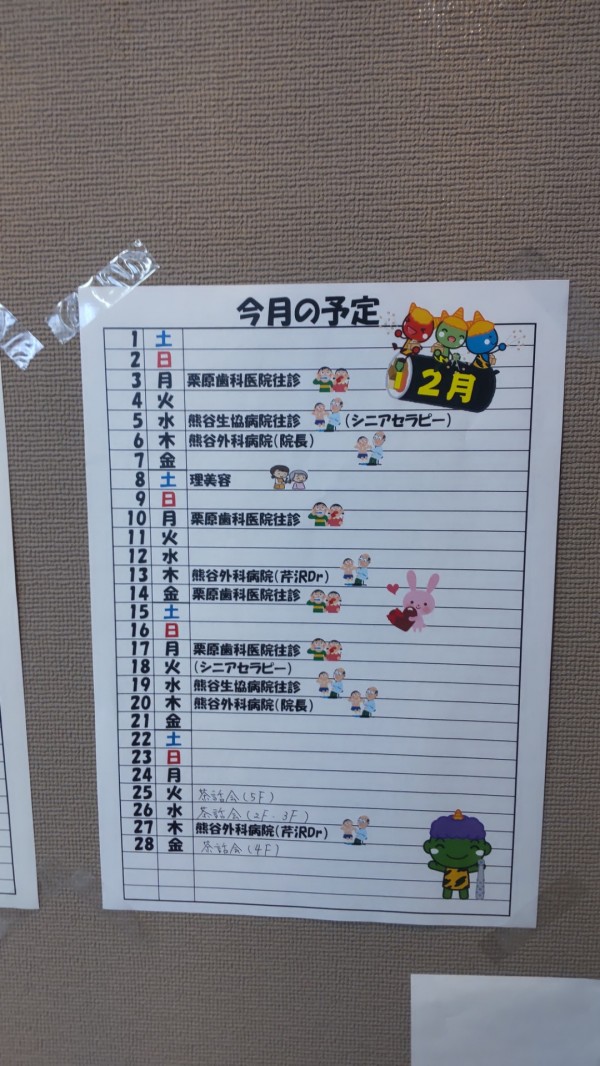 今月の予定
2月
1 土
2 日
3 月 栗原歯科医院往診
4 火
5 水 熊谷生協病院往診 (シニアセラピー)
6 木 熊谷外科病院(院長)
7 金
8 土 理美容
9 日
10 月 栗原歯科医院往診
11 火
12 水
13 木 熊谷外科病院(芹沢Dr)
14 金 栗原歯科医院往診
15 土
16 日
17 月 栗原歯科医院往診
18 火 (シニアセラピー)
19 水 熊谷生協病院往診
20 木 熊谷外科病院(院長)
21 金
22 土
23 日
24 月
25 火 茶話会(5F)
26 水 茶話会(2F・3F)
27 木 熊谷外科病院(芹沢Dr)
28 金 茶話会(4F)